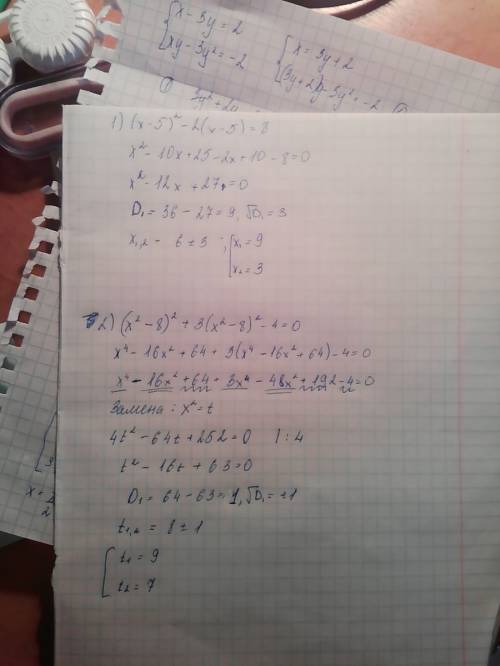 x - 3y = 2
xy - 3y² = -2
x = 3y + 2
(3y+2)y - 3y² = -2
1) (x-5)² - 2(x-5) = 8
x² - 10x + 25 - 2x + 10 - 8 = 0
x² - 12x + 27 = 0
D₁ = 36 - 27 = 9, √D₁ = 3
x₁,₂ = 6 ± 3 ; [x₁ = 9
x₂ = 3
2) (x² - 8)² + 3(x² - 8)² - 4 = 0
x⁴ - 16x² + 64 + 3(x⁴ - 16x² + 64) - 4 = 0
x⁴ - 16x² + 64 + 3x⁴ - 48x² + 192 - 4 = 0
Замена : x² = t
4t² - 64t + 252 = 0 | : 4
t² - 16t + 63 = 0
D₁ = 64 - 63 = 1, √D₁ = ±1
t₁,₂ = 8 ± 1
t₁ = 9
t₂ = 7